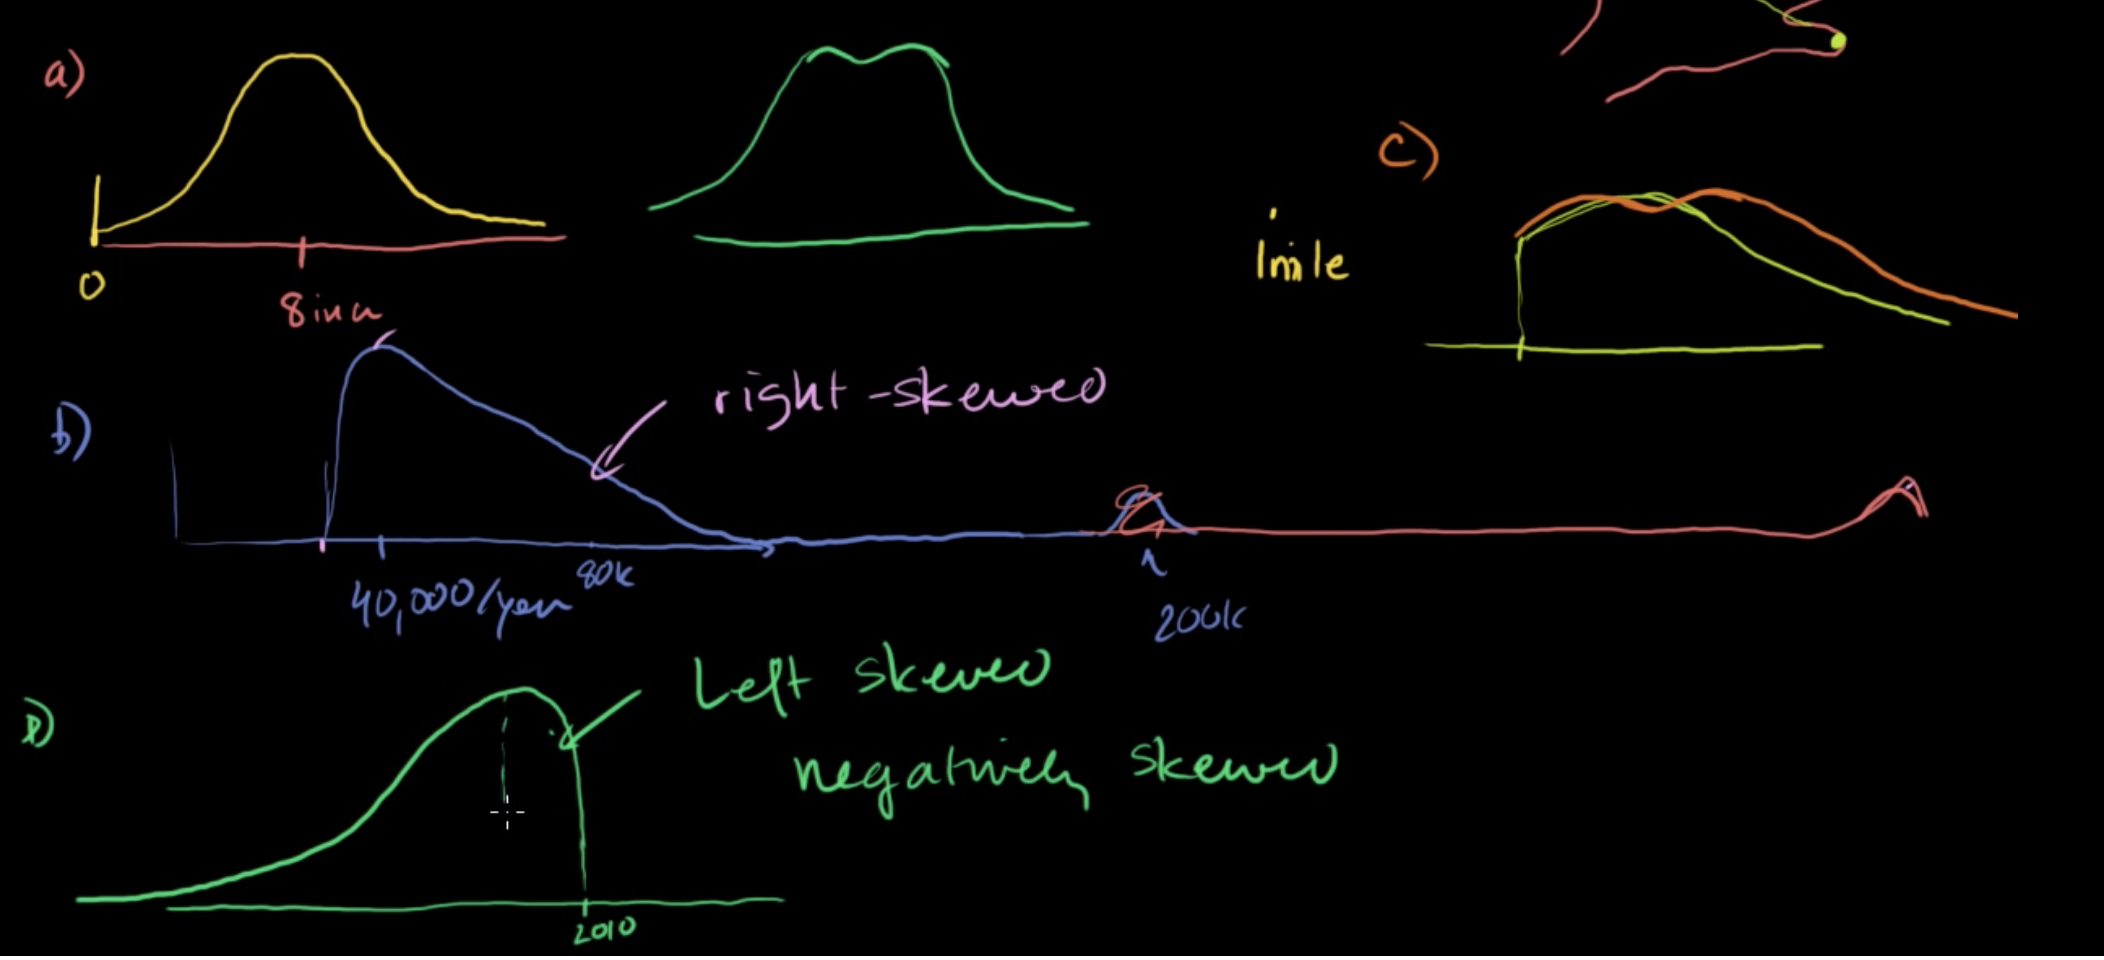 a)
0
8 in
c)
1 mile
b)
right-skewed
40,000/year
80k
200k
D)
Left skewed
negatively skewed
2010